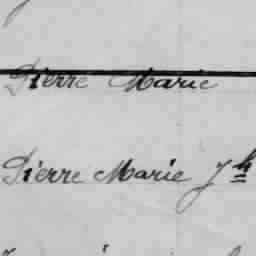 Pierre Marie
Pierre Marie Jh